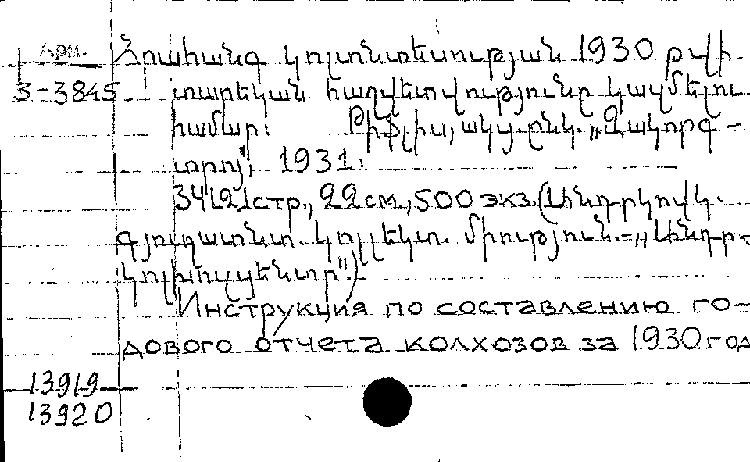 Арм.
3-3845
Հրահանգ կոլտնտեսության 1930 թվի
տարեկան հաշվետվությունը կազմելու
համար։ Թիֆլիս, ակց. ընկ. „Զակորգ-
տրոյ", 1931։
34[2] стр., 22 см., 500 экз. (Անդրկովկ.
գյուղատնտ. կոլլեկտ. միություն.-„Անդր-
կոլխոզցենտր").
Инструкция по составлению го-
дового отчета колхозов за 1930 год
13919
13920